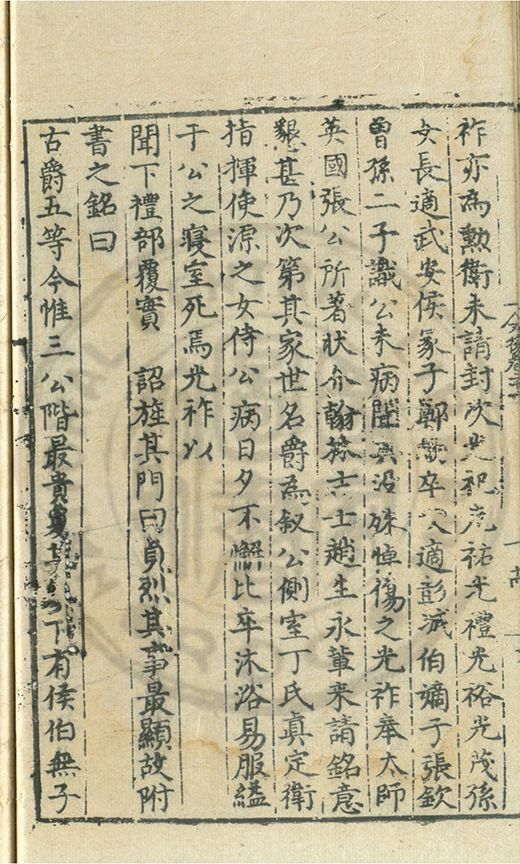 祚亦為勳衛未請封次光祀光祐光禮光裕光茂孫
女長適武安侯冢子鄭 卒 適彭城伯嫡子張欽
曾孫二子識公未病聞其沒殊悼傷之光祚奉太師
英國張公所著狀介翰林 士趙生永輩来請銘意
懇甚乃次第其家世名爵為叙公側室丁氏真定衛
指揮使源之女侍公病日夕不懈比卒沐浴易服縊
于公之寢室死焉光祚以
聞下禮部覆實 詔旌其門曰貞烈其事最顯故附
書之銘曰
古爵五等今惟三公階最貴 下有侯伯無子